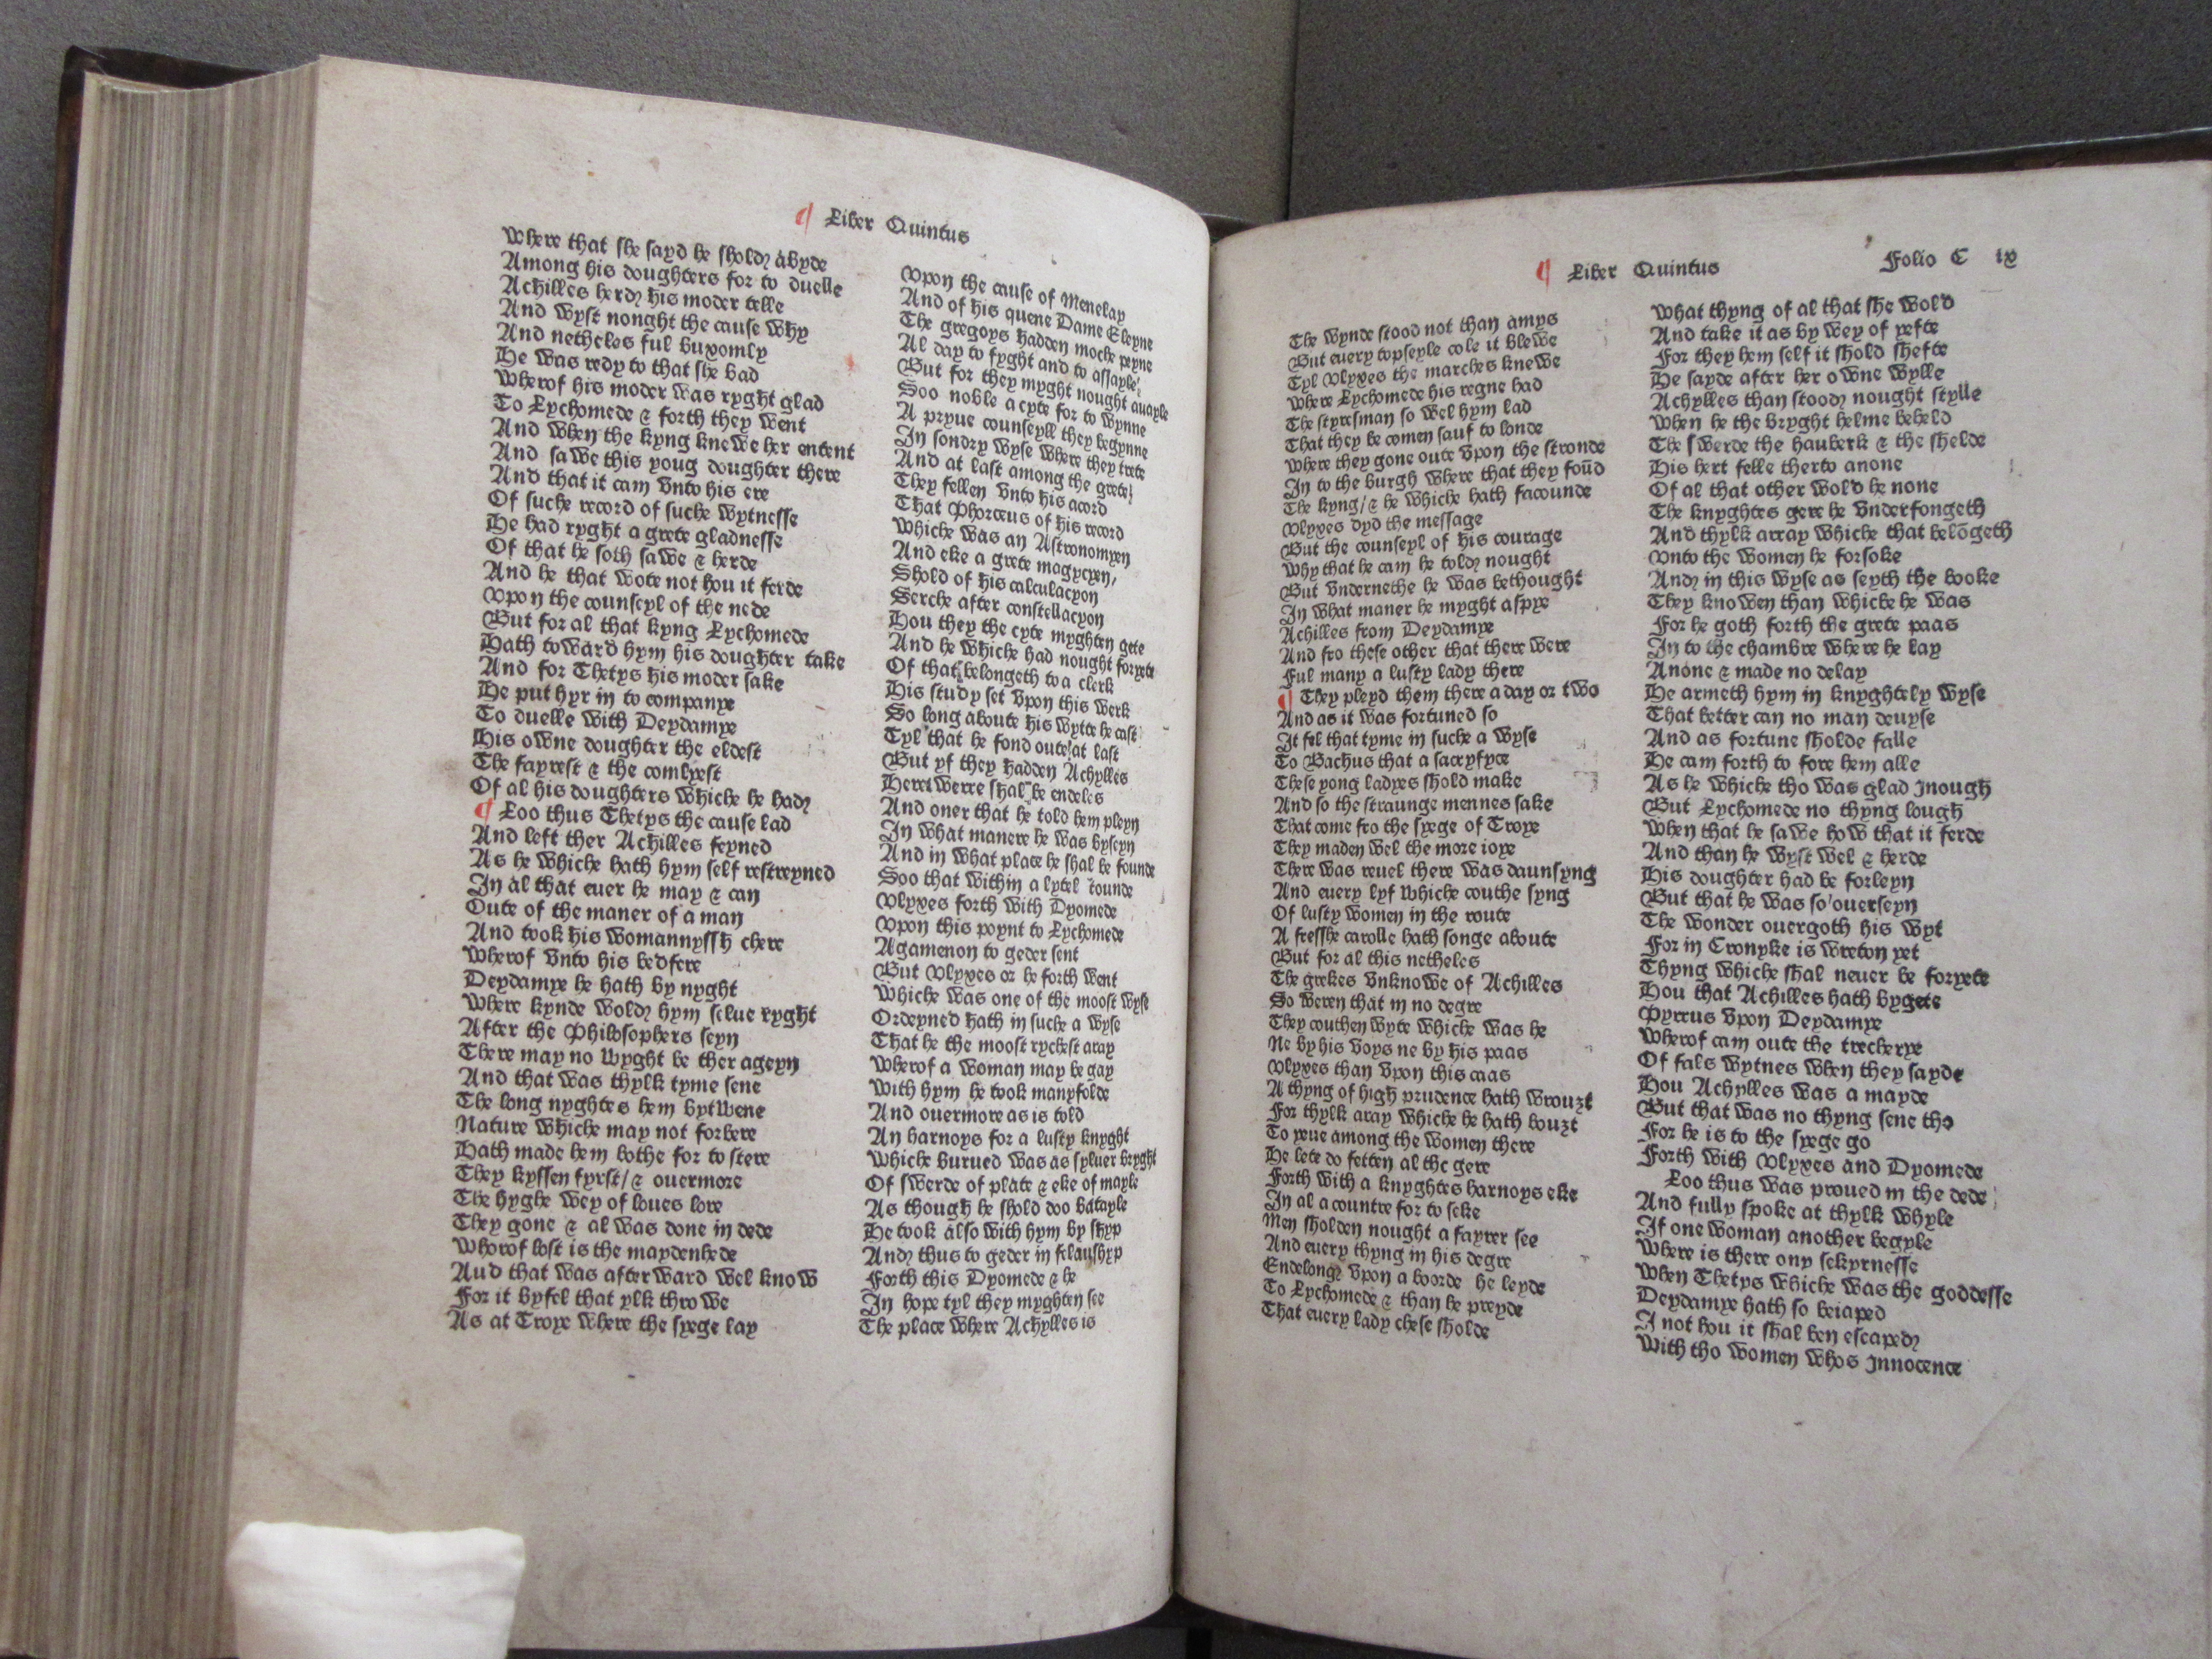 ¶ Liber Quintus
Where that she sayd he shold abyde
Among his doughters for to duelle
Achilles herd his moder telle
And wyst nonght the cause why
And netheles ful buxomly
He was redy to that she bad
Wherof his moder was ryght glad
To Lychomede & forth they went
And when the kyng knewe her entent
And sawe this youg doughter there
And that it cam vnto his ere
Of suche record of suche wytnesse
He had ryght a grete gladnesse
Of that he soth sawe & herde
And he that wote not hou it ferde
Vpon the counseyl of the nede
But for al that kyng Lychomede
Hath toward hym his doughter take
And for Thetys his moder sake
He put hyr in to companye
To duelle with Deydamye
His owne doughter the eldest
The fayrest & the comlyest
Of al his doughters whiche he had
¶ Loo thus Thetys the cause lad
And left ther Achilles feyned
As he whiche hath hym self restreyned
In al that euer he may & can
Oute of the maner of a man
And took his womannyssh chere
Wherof vnto his bedfere
Deydamye he hath by nyght
Where kynde wold hym selue ryght
After the Philosophers seyn
There may no wyght be ther ageyn
And that was thylk tyme sene
The long nyghtes hem bytwene
Nature whiche may not forbere
Hath made hem bothe for to stere
They kyssen fyrst/ & ouermore
The hyghe wey of loues lore
They gone & al was done in dede
Whorof lost is the maydenhede
Aud that was afterward wel know
For it byfel that ylk throwe
As at Troye where the syege lay
Vpon the cause of Menelay
And of his quene Dame Eleyne
The gregoys hadden moche peyne
Al day to fyght and to assayle
But for they myght nought auayle
Soo noble a cyte for to wynne
A pryue counseyll they begynne
In sondry wyse where they trete
And at last among the grete
They fellen vnto his acord
That Phorceus of his record
Whiche was an Astronomyen
And eke a grete magycyen,
Shold of his calculacyon
Serche after constellacyon
Hou they the cyte myghten gete
And he whiche had nought foryete
Of that belongeth to a clerk
His study set vpon this werk
So long aboute his wytte he cast
Tyl that he fond oute at last
But yf they hadden Achylles
Here werre shal be endeles
And oner that he told hem pleyn
In what manere he was byseyn
And in what place he shal be founde
Soo that within a lytel rounde
Vlyxes forth with Dyomede
Vpon this poynt to Lychomede
Agamenon to geder sent
But Vlyxes or he forth went
Whiche was one of the moost wyse
Ordeyned hath in suche a wyse
That he the moost rychest aray
Wherof a woman may be gay
With hym he took manyfolde
And ouermore as is told
An harnoys for a lusty knyght
Whiche burued was as syluer bryght
Of swerde of plate & eke of mayle
As though he shold doo batayle
He took also with hym by shyp
And thus to geder in felaushyp
Forth this Dyomede & he
In hope tyl they myghten see
The place where Achylles is
¶ Liber Quintus Folio C ix
The wynde stood not than amys
But euery topseyle cole it blewe
Tyl Vlyxes the marches knewe
Where Lychomede his regne had
The styresman so wel hym lad
That they be comen sauf to londe
Where they gone oute vpon the stronde
In to the burgh where that they foūd
The kyng/ & he whiche hath facounde
Vlyxes dyd the message
But the counseyl of his courage
Why that he cam he told nought
But vndernethe he was bethought
In what maner he myght aspye
Achilles from Deydamye
And fro these other that there were
Ful many a lusty lady there
¶ They pleyd them there a day or two
And as it was fortuned so
It fel that tyme in suche a wyse
To Bachus that a sacryfyce
These yong ladyes shold make
And so the straunge mennes sake
That come fro the syege of Troye
They maden wel the more ioye
There was reuel there was daunsyng
And euery lyf whiche couthe syng
Of lusty women in the route
A fresshe carolle hath songe aboute
But for al this netheles
The grekes vnknowe of Achilles
So weren that in no degre
They couthen wyte whiche was he
Ne by his voys ne by his paas
Vlyxes than vpon this caas
A thyng of high prudence hath wrouzt
For thylk aray whiche he hath bouzt
To yeue among the women there
He lete do fetten al the gere
Forth with a knyghtes harnoys eke
In al a countre for to seke
Men sholden nought a fayrer see
And euery thyng in his degre
Endelong vpon a boorde he leyde
To Lychomede & than he preyde
That euery lady chese sholde
What thyng of al that she wold
And take it as by wey of yefte
For they hem self it shold shefte
He sayde after her owne wylle
Achylles than stood nought stylle
When he the bryght helme beheld
The swerde the hauberk & the shelde
His hert felle therto anone
Of al that other wold he none
The knyghtes gere he vnderfongeth
And thylk array whiche that belōgeth
Vnto the women he forsoke
And in this wyse as seyth the booke
They knowen than whiche he was
For he goth forth the grete paas
In to the chambre where he lay
Anone & made no delay
He armeth hym in knyghtely wyse
That better can no man deuyse
And as fortune sholde falle
He cam forth to fore hem alle
As he whiche tho was glad Inough
But Lychomede no thyng lough
When that he sawe how that it ferde
And than he wyst wel & herde
His doughter had be forleyn
But that he was so ouerseyn
The wonder ouergoth his wyt
For in Cronyke is wreton yet
Thyng whiche shal neuer be foryete
Hou that Achilles hath bygete
Pyrrus vpon Deydamye
Wherof cam oute the trecherye
Of fals wytnes when they sayde
Hou Achylles was a mayde
But that was no thyng sene tho
For he is to the syege go
Forth with Vlyxes and Dyomede
Loo thus was proued in the dede
And fully spoke at thylk whyle
If one woman another begyle
Where is there ony sekyrnesse
When Thetys whiche was the goddesse
Deydamye hath so beiaped
I not hou it shal ben escaped
With tho women whos Innocence